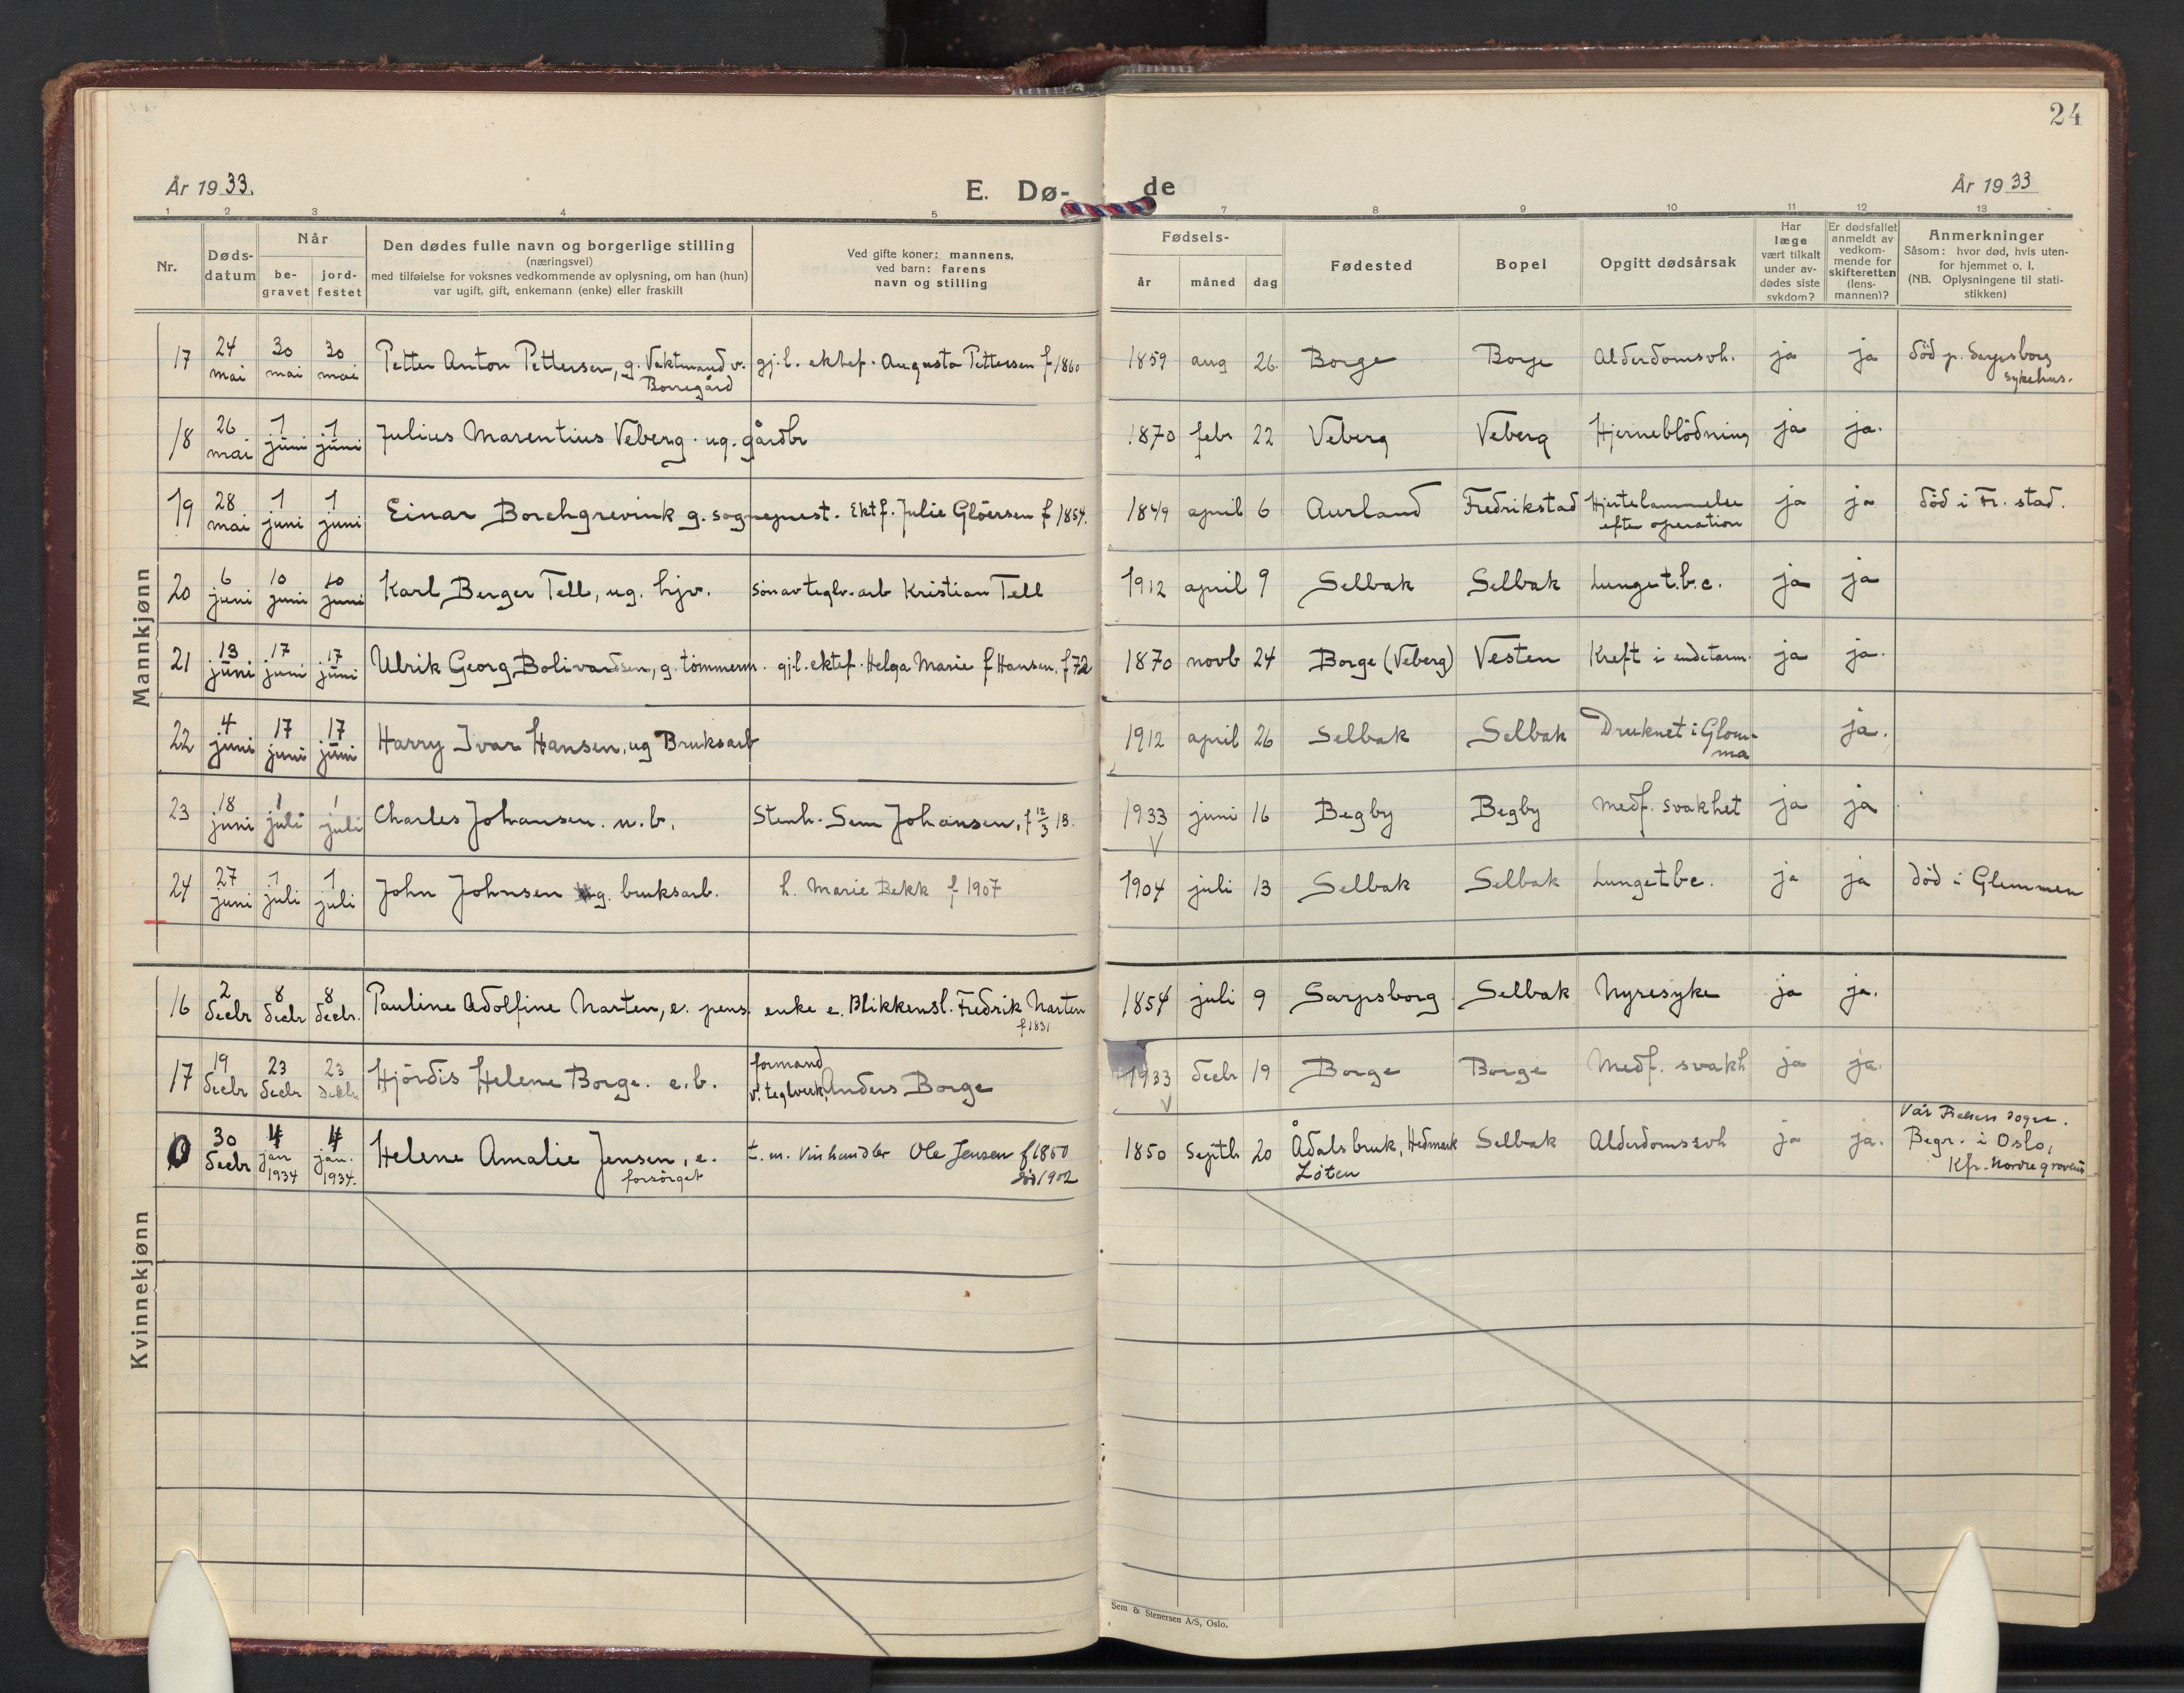 24
År 1933.
E. Dø-
de
År 1933
1 2 3 4 5 7 8 9 10 11 12 13
Nr.
Døds-
datum
Når
be-
gravet
jord-
festet
Den dødes fulle navn og borgerlige stilling
(næringsvei)
med tilføielse for voksnes vedkommende av oplysning, om han (hun)
var ugift, gift, enkemann (enke) eller fraskilt
Ved gifte koner: mannens,
ved barn: farens
navn og stilling
Fødsels-
år måned dag
Fødested
Bopel
Opgitt dødsårsak
Har
læge
vært tilkalt
under av-
dødes siste
sykdom?
Er dødsfallet
anmeldt av
vedkom-
mende for
skifteretten
(lens-
mannen)?
Anmerkninger
Såsom: hvor død, hvis uten-
for hjemmet o. l.
(NB. Oplysningene til stati-
stikken)
Mannkjønn
17 24 mai 30 mai 30 mai Petter Anton Pettersen, g. Vaktmand v. Borregård gj.l. ektef. Augusta Pettersen f 1860 1859 aug 26. Borge Borge Alderdomsvh. ja ja død p. Sarpsborg sykehus.
18 26 mai 1 juni 1 juni Julius Marentius Veberg. ug. gårdbr 1870 febr 22 Veberg Veberg Hjerneblødning ja ja.
19 28 mai 1 juni 1 juni Einar Borchgrevink g. sogneprest. Ektf. Julie Gløersen f 1854. 1849 april 6 Aurland Fredrikstad Hjertelammelse efter operation ja ja død i Fr. stad.
20 6 juni 10 juni 10 juni Karl Berger Tell, ug. hjv. søn av teglv. arb Kristian Tell 1912 april 9 Selbak Selbak Lunget.b.c. ja ja
21 13 juni 17 juni 17 juni Ulrik Georg Bolivardsen, g. tømmerm. gj.l. ektef. Helga Marie f Hansen. f 72 1870 novb 24 Borge (Veberg) Vesten Kreft i endetarm. ja ja.
22 4 juni 17 juni 17 juni Harry Ivar Hansen, ug Bruksarb 1912 april 26 Selbak Selbak Druknet i Glom-ma ja.
23 18 juni 1 juli 1 juli Charles Johansen. u.b. Stenh. Sem Johansen, f 12/3 13. 1933 juni 16 Begby Begby Medf. svakhet ja ja
24 27 juni 1 juli 1 juli John Johnsen g. bruksarb. h. Marie Bekk f 1907 1904 juli 13 Selbak Selbak Lungetbc. ja ja død i Glemmen
Kvinnekjønn
16 2 decbr 8 decbr 8 decbr. Pauline Adolfine Narten, e. pens. enke e. Blikkensl. Fredrik Narten f 1831 1854 juli 9 Sarpsborg Selbak Nyresyke ja ja.
17 19 decbr 23 decbr 23 decbr. Hjørdis Helene Borge. e.b. formand v. teglverk, Anders Borge 1933 decbr 19 Borge Borge Medf. svakh ja ja.
0 30 decbr 4 jan 1934 4 jan. 1934. Helene Amalie Jensen, e. forsørget t. m. Vinhandler Ole Jensen f 1850 død 1902 1850 Septb 20 Ådalsbruk, Hedmark Løten Selbak Alderdomssvh ja ja. Vår Frelsers sogn. Begr. i Oslo, Kfr. Nordre gravlund
Sem & Stenersen A/S, Oslo.